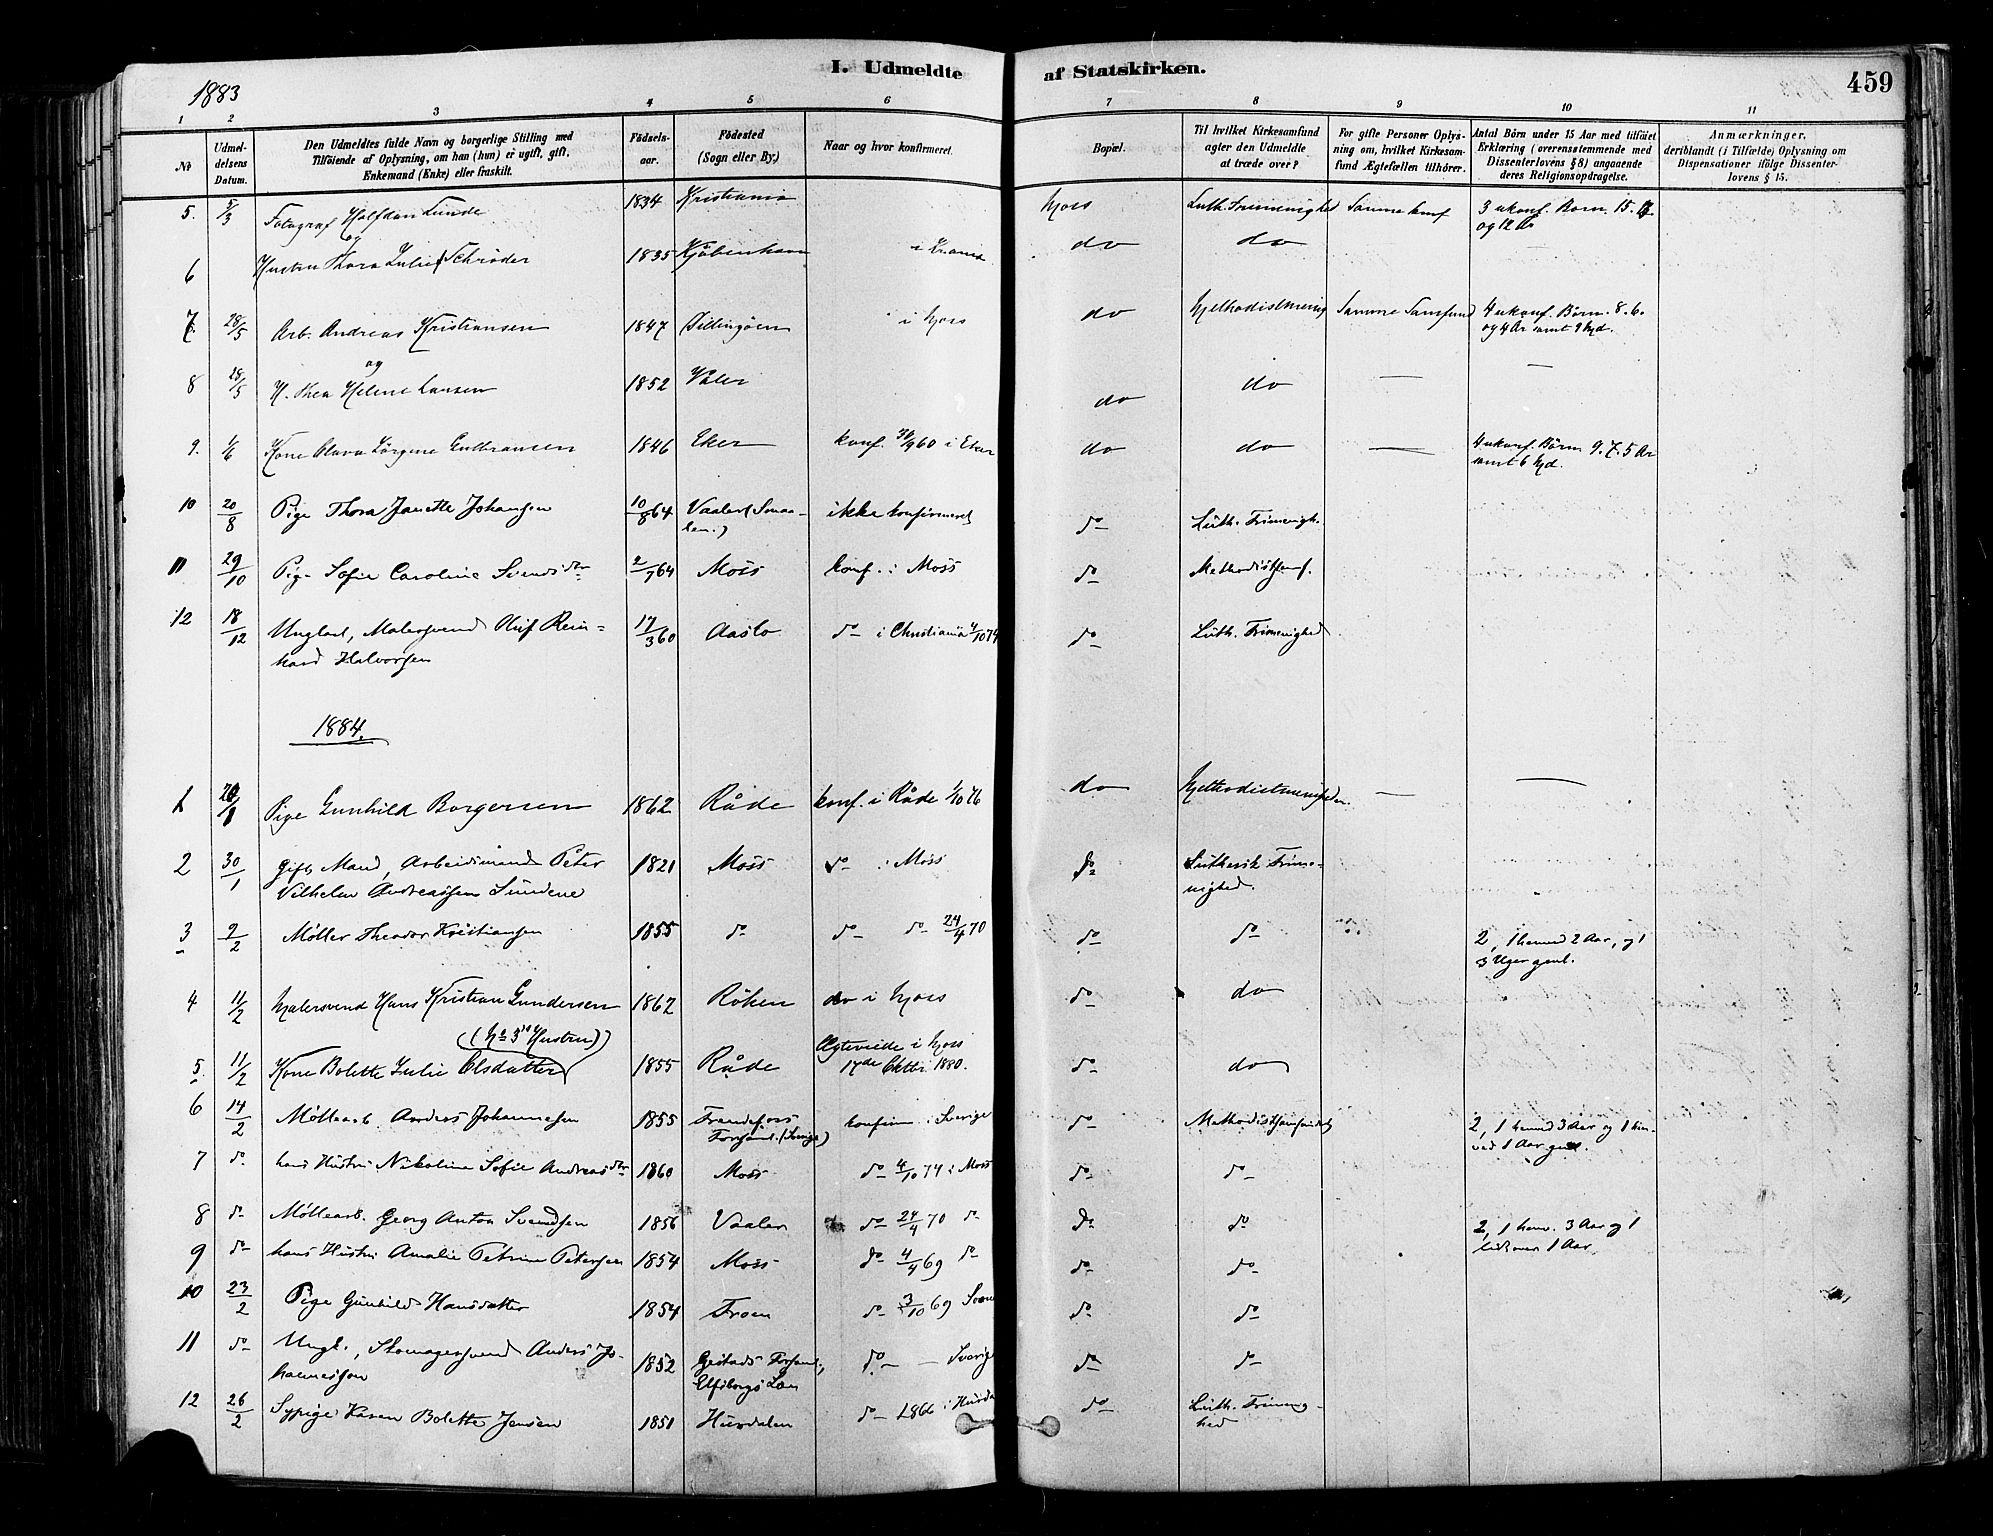 I. Udmeldte af Statskirken.
459
1883
1 2 3 4 5 6 7 8 9 10 11
No
Udmeldelsens Datum.
Den Udmeldtes fulde Navn og borgerlige Stilling med
Tilföiende af Oplysning, om han (hun) er ugift, gift,
Enkemand (Enke) eller fraskilt.
Födselsaar.
Födested
(Sogn eller By.)
Naar og hvor konfirmeret.
Bopæl.
Til hvilket Kirkesamfund
agter den Udmeldte
at træde over?
For gifte Personer Oplysning om, hvilket Kirkesamfund Ægtefællen tilhörer.
Antal Börn under 15 Aar med tilföiet
Erklæring (overensstemmende med
Dissenterlovens § 8) angaaende
deres Religionsopdragelse.
Anmærkninger,
deriblandt (i Tilfælde) Oplysning om
Dispensationer ifölge Dissenterlovens § 15.
5. 5/3 Fotograf Halfdan Lunde 1834 Kristiania Moss Luth. Frimenighed Samme konf 3 ukonf. Born. 15.
og 12 År
og
6 Hustru Thora Julie Schrøder 1835 Kjøbenhavn i Krania do do
7 28/5 Arb. Andreas Kristiansen 1847 i Moss do Methodistmenig Samme Samfund 4 ukonf. Børn. 8. 6.
og 4 År samt 9 Md.
og
8 28/5 H. Thea Helene Larsen 1852 Våler do do — —
9. 1/6 Kone Olava Jörgine Gulbransen 1846 Eker konf. 60 i Eker do do — 4 ukonf. Børn 9. 7. 5 År
samt 6 Md.
10 20/8 Pige Thora Janette Johansen 10/8 64 Vaaler (Smaa-
len.) ikke konfirmeret do Luth. Frimenigh.
11 29/10 Pige Sofie Caroline Svendsdtr 2/7 64 Moss konf. i Moss do Methodistsamf.
12 18/12 Ungkarl, Malersvend Oluf Rein-
hard Halvorsen 17/3 60 Aaslo do i Christiania 4/10 74 do Luth. Frimenighed
1884.
1 Pige Gunhild Borgersen 1862 Råde konf. i Råde 1/10 76 do Methodistmenigheden — —
2 30/1 Gift Mand, Arbeidsmand Peter
Vilhelm Andreassen Sundene 1821 Moss do i Moss do Luthersk Frime-
nighed.
3 9/2 Møller Theodor Kristiansen 1855 do do do 24/4 70 do do 2, 1 henved 2 Aar, og 1
3 Uger gml.
4 11/2 Malersvend Hans Kristian Gundersen 1862 Röken do i Moss do do
(No 3's Hustru)
5. 11/2 Kone Bolette Julie Olsdatter 1855 Råde Ægteviede i Moss
17de Oktbr. 1880. do do
6 14/2 Møllearb. Anders Johannesen 1855 Frendefors
Forsaml. (Sverige) konfirm. i Sverige do Methodistsamfundet 2, 1 henved 3 Aar og 1 hen-
ved 1 Aar gml.
7 do hans Hustru Nikolina Sofie Andreasdtr 1860 Moss do 4/10 74 i Moss do do
8 do Møllearb. Georg Anton Svendsen 1856 Vaaler do 24/4 70 do do do 2, 1 henv. 3 Aar og 1
lidt over 1 Aar.
9 do hans Hustru Amalie Petrine Petersen 1854 Moss do 4/4 69 do do do
10 23/2 Pige Gunhild Hansdatter 1854 Froen do 3/10 69 do do
11 do Ungk., Skomagersvend Anders Jo-
hannessen 1852 Gestads Forsaml.,
Elfsborgs Län do — Sverige do do
12 26/2 Sypige Karen Bolette Jensen 1851 Hurdalen do 1866 i Hurda do Luth. Frimenig-
hed